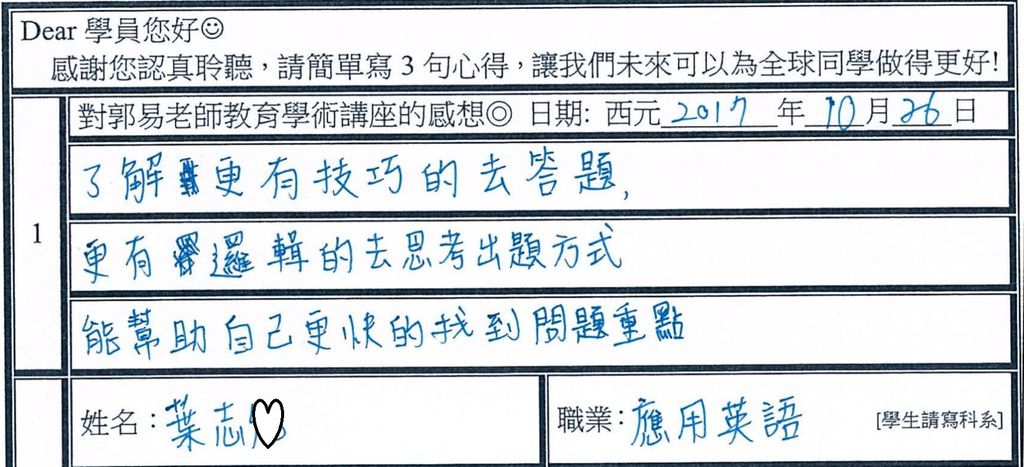 Dear 學員您好☺
感謝您認真聆聽，請簡單寫 3 句心得，讓我們未來可以為全球同學做得更好!
1
對郭易老師教育學術講座的感想◎ 日期: 西元 2017 年 10 月 26 日
了解更有技巧的去答題,
更有邏輯的去思考出題方式
能幫助自己更快的找到問題重點
姓名：葉志
職業：應用英語 [學生請寫科系]